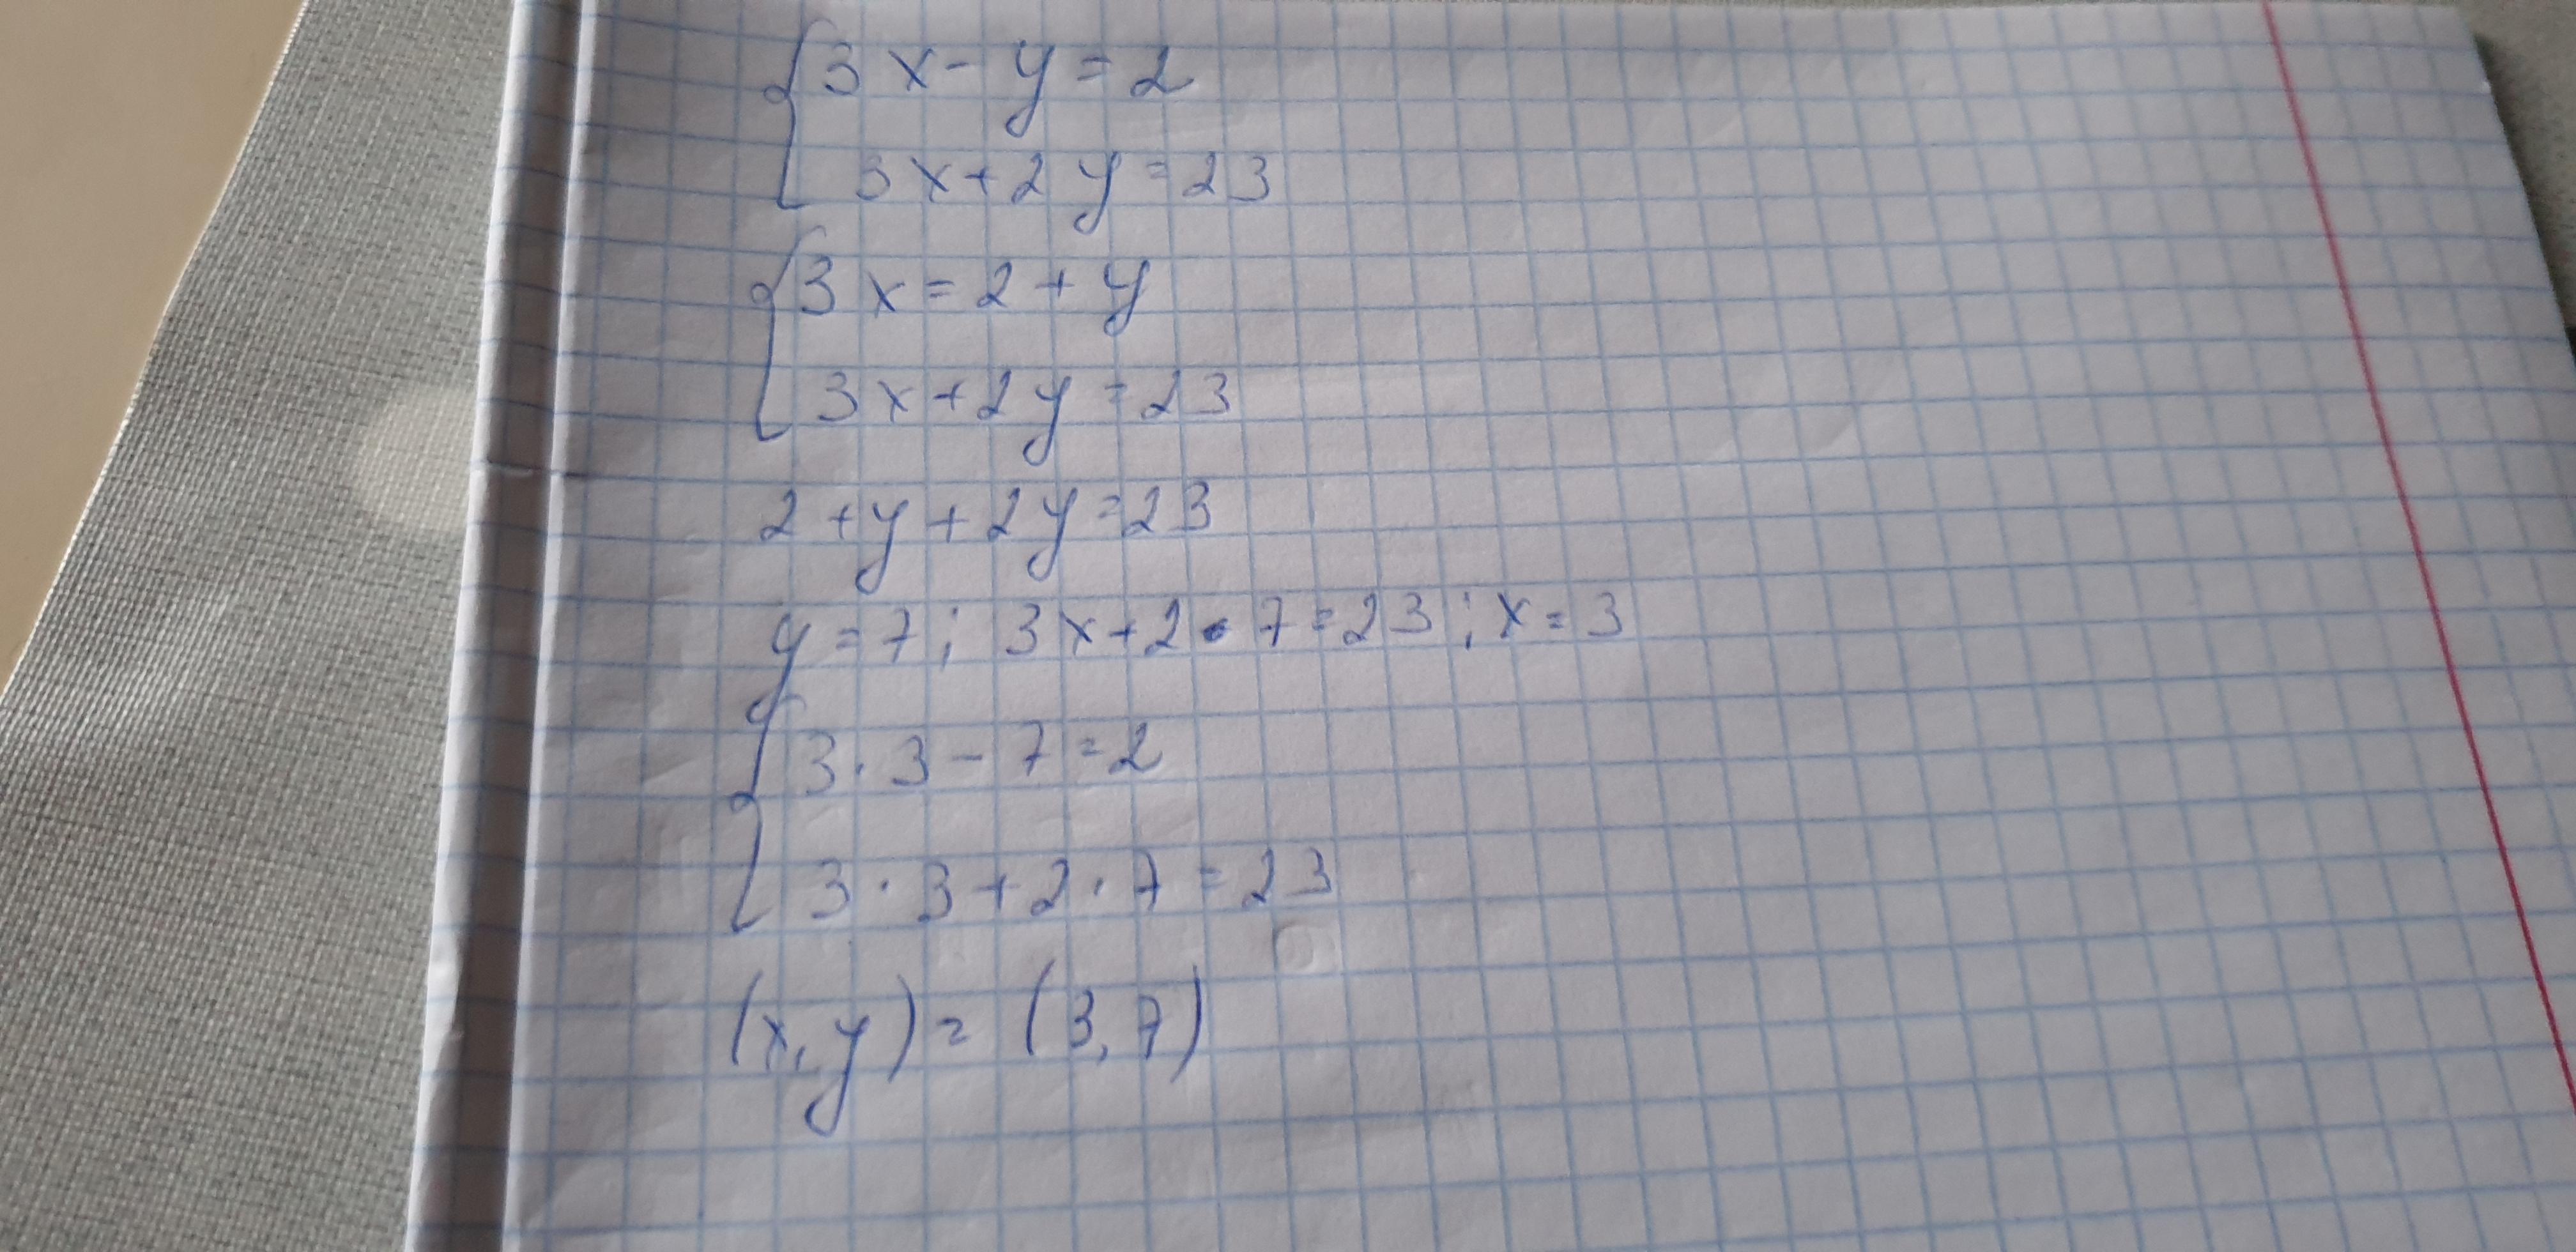 {3x - y = 2
3x + 2y = 23
{3x = 2 + y
3x + 2y = 23
2 + y + 2y = 23
y = 7; 3x + 2 · 7 = 23; x = 3
{3 · 3 - 7 = 2
3 · 3 + 2 · 7 = 23
(x, y) = (3, 7)